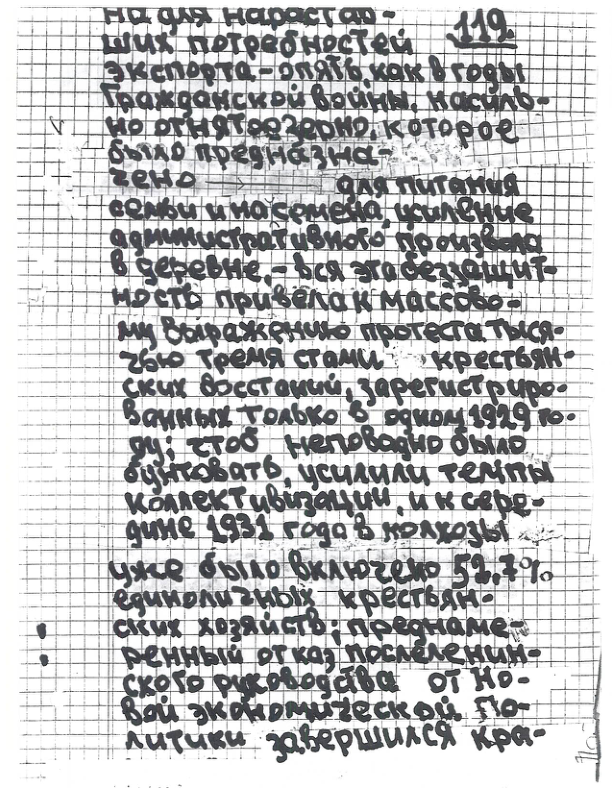 на для нарастав-
119.
ших потребностей
экспорта - опять, как в годы
Гражданской войны, насиль-
но отнятое зерно, которое
было предназна-
чено для питания
семьи и на семена, усиление
административного произвола
в деревне, - вся эта беззащит-
ность привела к массово-
му выражению протеста тыся-
чью тремя стами крестьян-
ских восстаний, зарегистриро-
ванных только в одном 1929 го-
ду; чтоб неповадно было
бунтовать, усилили темпы
коллективизации, и к сере-
дине 1931 года в колхозы
уже было включено 52,7%
единоличных крестьян-
ских хозяйств; преднаме-
ренный отказ послеленин-
ского руководства от Но-
вой экономической По-
литики завершился кра-